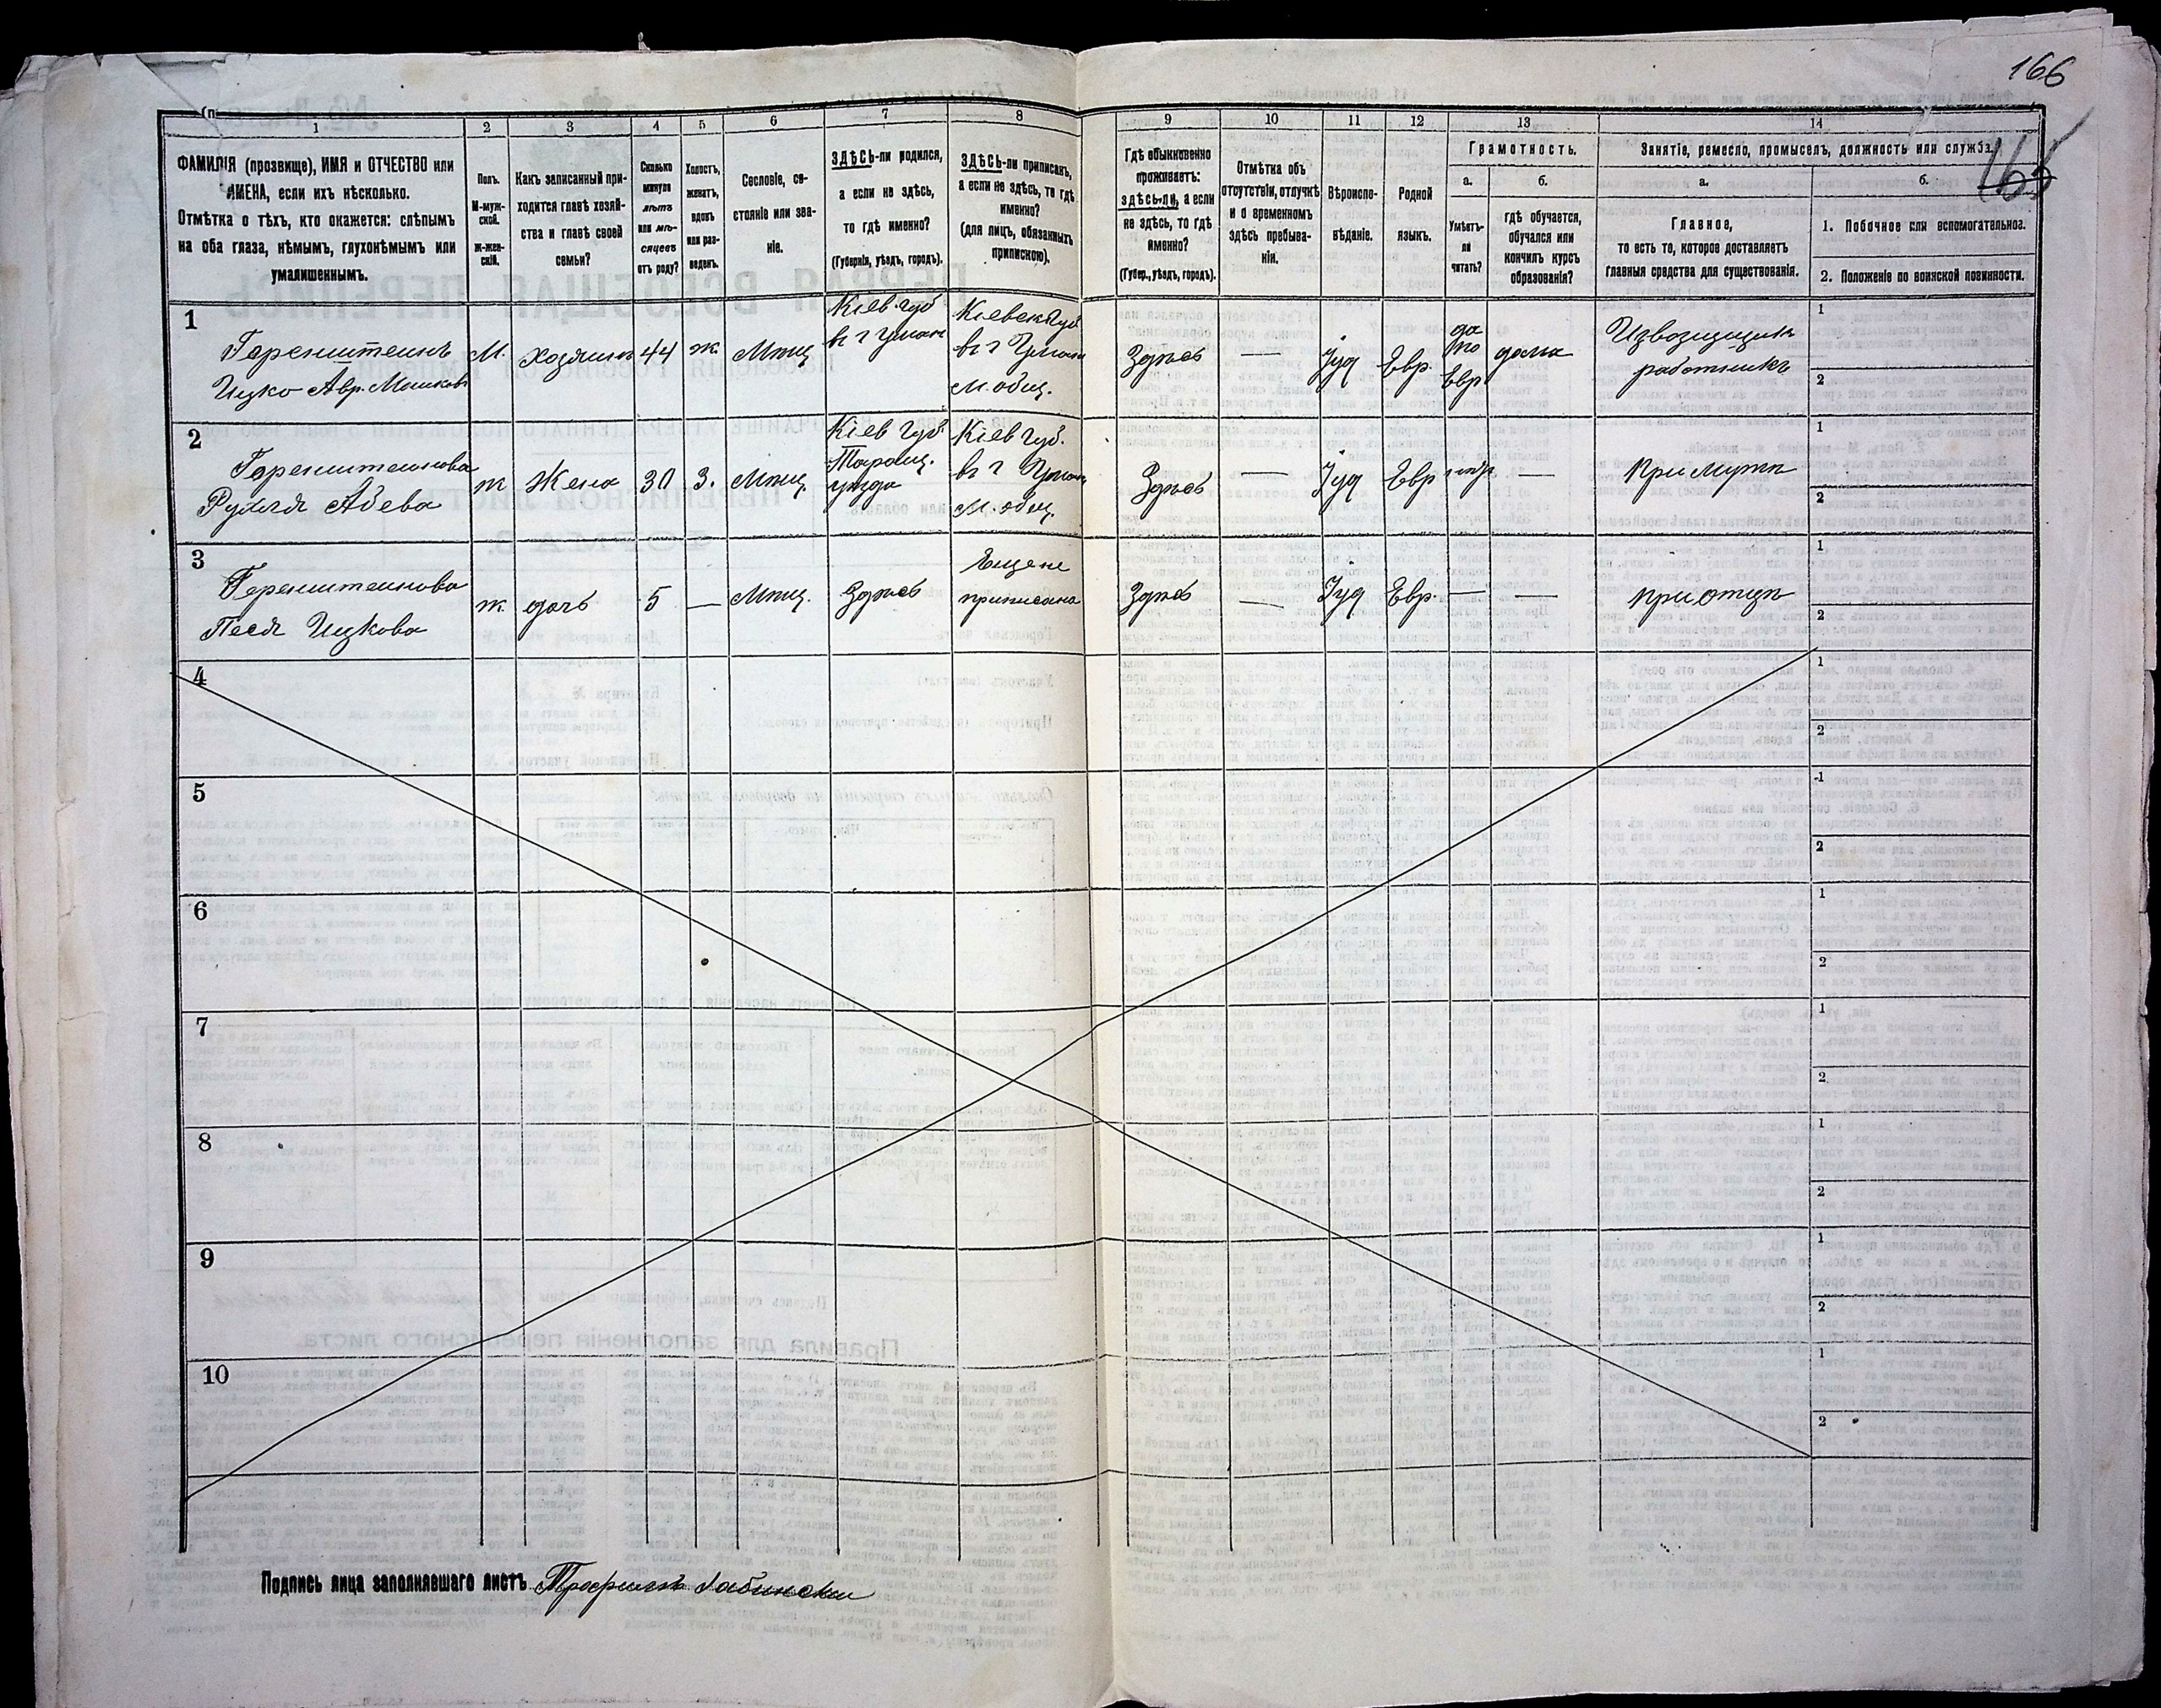 166
165
1
2
3
4
5
6
7
8
9
10
11
12
13
14
ФАМИЛІЯ (прозвище), ИМЯ и ОТЧЕСТВО или
ИМЕНА, если ихъ нѣсколько.
Отмѣтка о тѣхъ, кто окажется: слѣпымъ
на оба глаза, нѣмымъ, глухонѣмымъ или
умалишеннымъ.
Полъ.
М-муж-
ской.
Ж-жен-
скій.
Какъ записанный при-
ходится главѣ хозяй-
ства и главѣ своей
семьи?
Сколько
минуло
лѣтъ
или мѣ-
сяцевъ
отъ роду?
Холостъ,
женатъ,
вдовъ
или раз-
веденъ.
Сословіе, со-
стояніе или зва-
ніе.
ЗДѢСЬ-ли родился,
а если не здѣсь,
то гдѣ именно?
(Губернія, уѣздъ, городъ).
ЗДѢСЬ-ли приписанъ,
а если не здѣсь, то гдѣ
именно?
(для лицъ, обязанныхъ
припискою).
Гдѣ обыкновенно
проживаетъ:
здѣсь-ли, а если
не здѣсь, то гдѣ
именно?
(Губер., уѣздъ, городъ).
Отмѣтка объ
отсутствіи, отлучкѣ
и о временномъ
здѣсь пребыва-
ніи.
Вѣроиспо-
вѣданіе.
Родной
языкъ.
Грамотность.
а.
б.
Умѣетъ-
ли
читать?
гдѣ обучается,
обучался или
кончилъ курсъ
образованія?
Занятіе, ремесло, промыселъ, должность или служба.
а.
б.
Главное,
то есть то, которое доставляетъ
главныя средства для существованія.
1. Побочное или вспомогательное.
2. Положеніе по воинской повинности.
1
Горенштеинъ
Ицко Авр. Мошковъ
М.
хозяинъ
44
ж.
Мѣщ
Кіев. губ
въ г Умани
Кіевск губ
въ г Умани
м. общ.
Здѣсь
—
Іуд
Евр.
да
по
Евр
дома
Извозщицкій
работникъ
1
2
2
Горенштеинова
Рухля Абева
ж
Жена
30
З.
Мѣщ.
Кіев губ.
Таращ.
уѣзда
Кіев губ.
въ г Умани
м. общ.
Здѣсь
—
Іуд
Евр
—
при мужѣ
1
2
3
Горенштеинова
Песя Ицкова
ж
дочь
5
—
Мѣщ.
Здѣсь
Еще не
приписана
Здѣсь
—
Іуд
Евр.
—
—
при отцѣ
1
2
4
1
2
5
1
2
6
1
2
7
1
2
8
1
2
9
1
2
10
1
2
Подпись лица заполнявшаго листъ Трофимъ